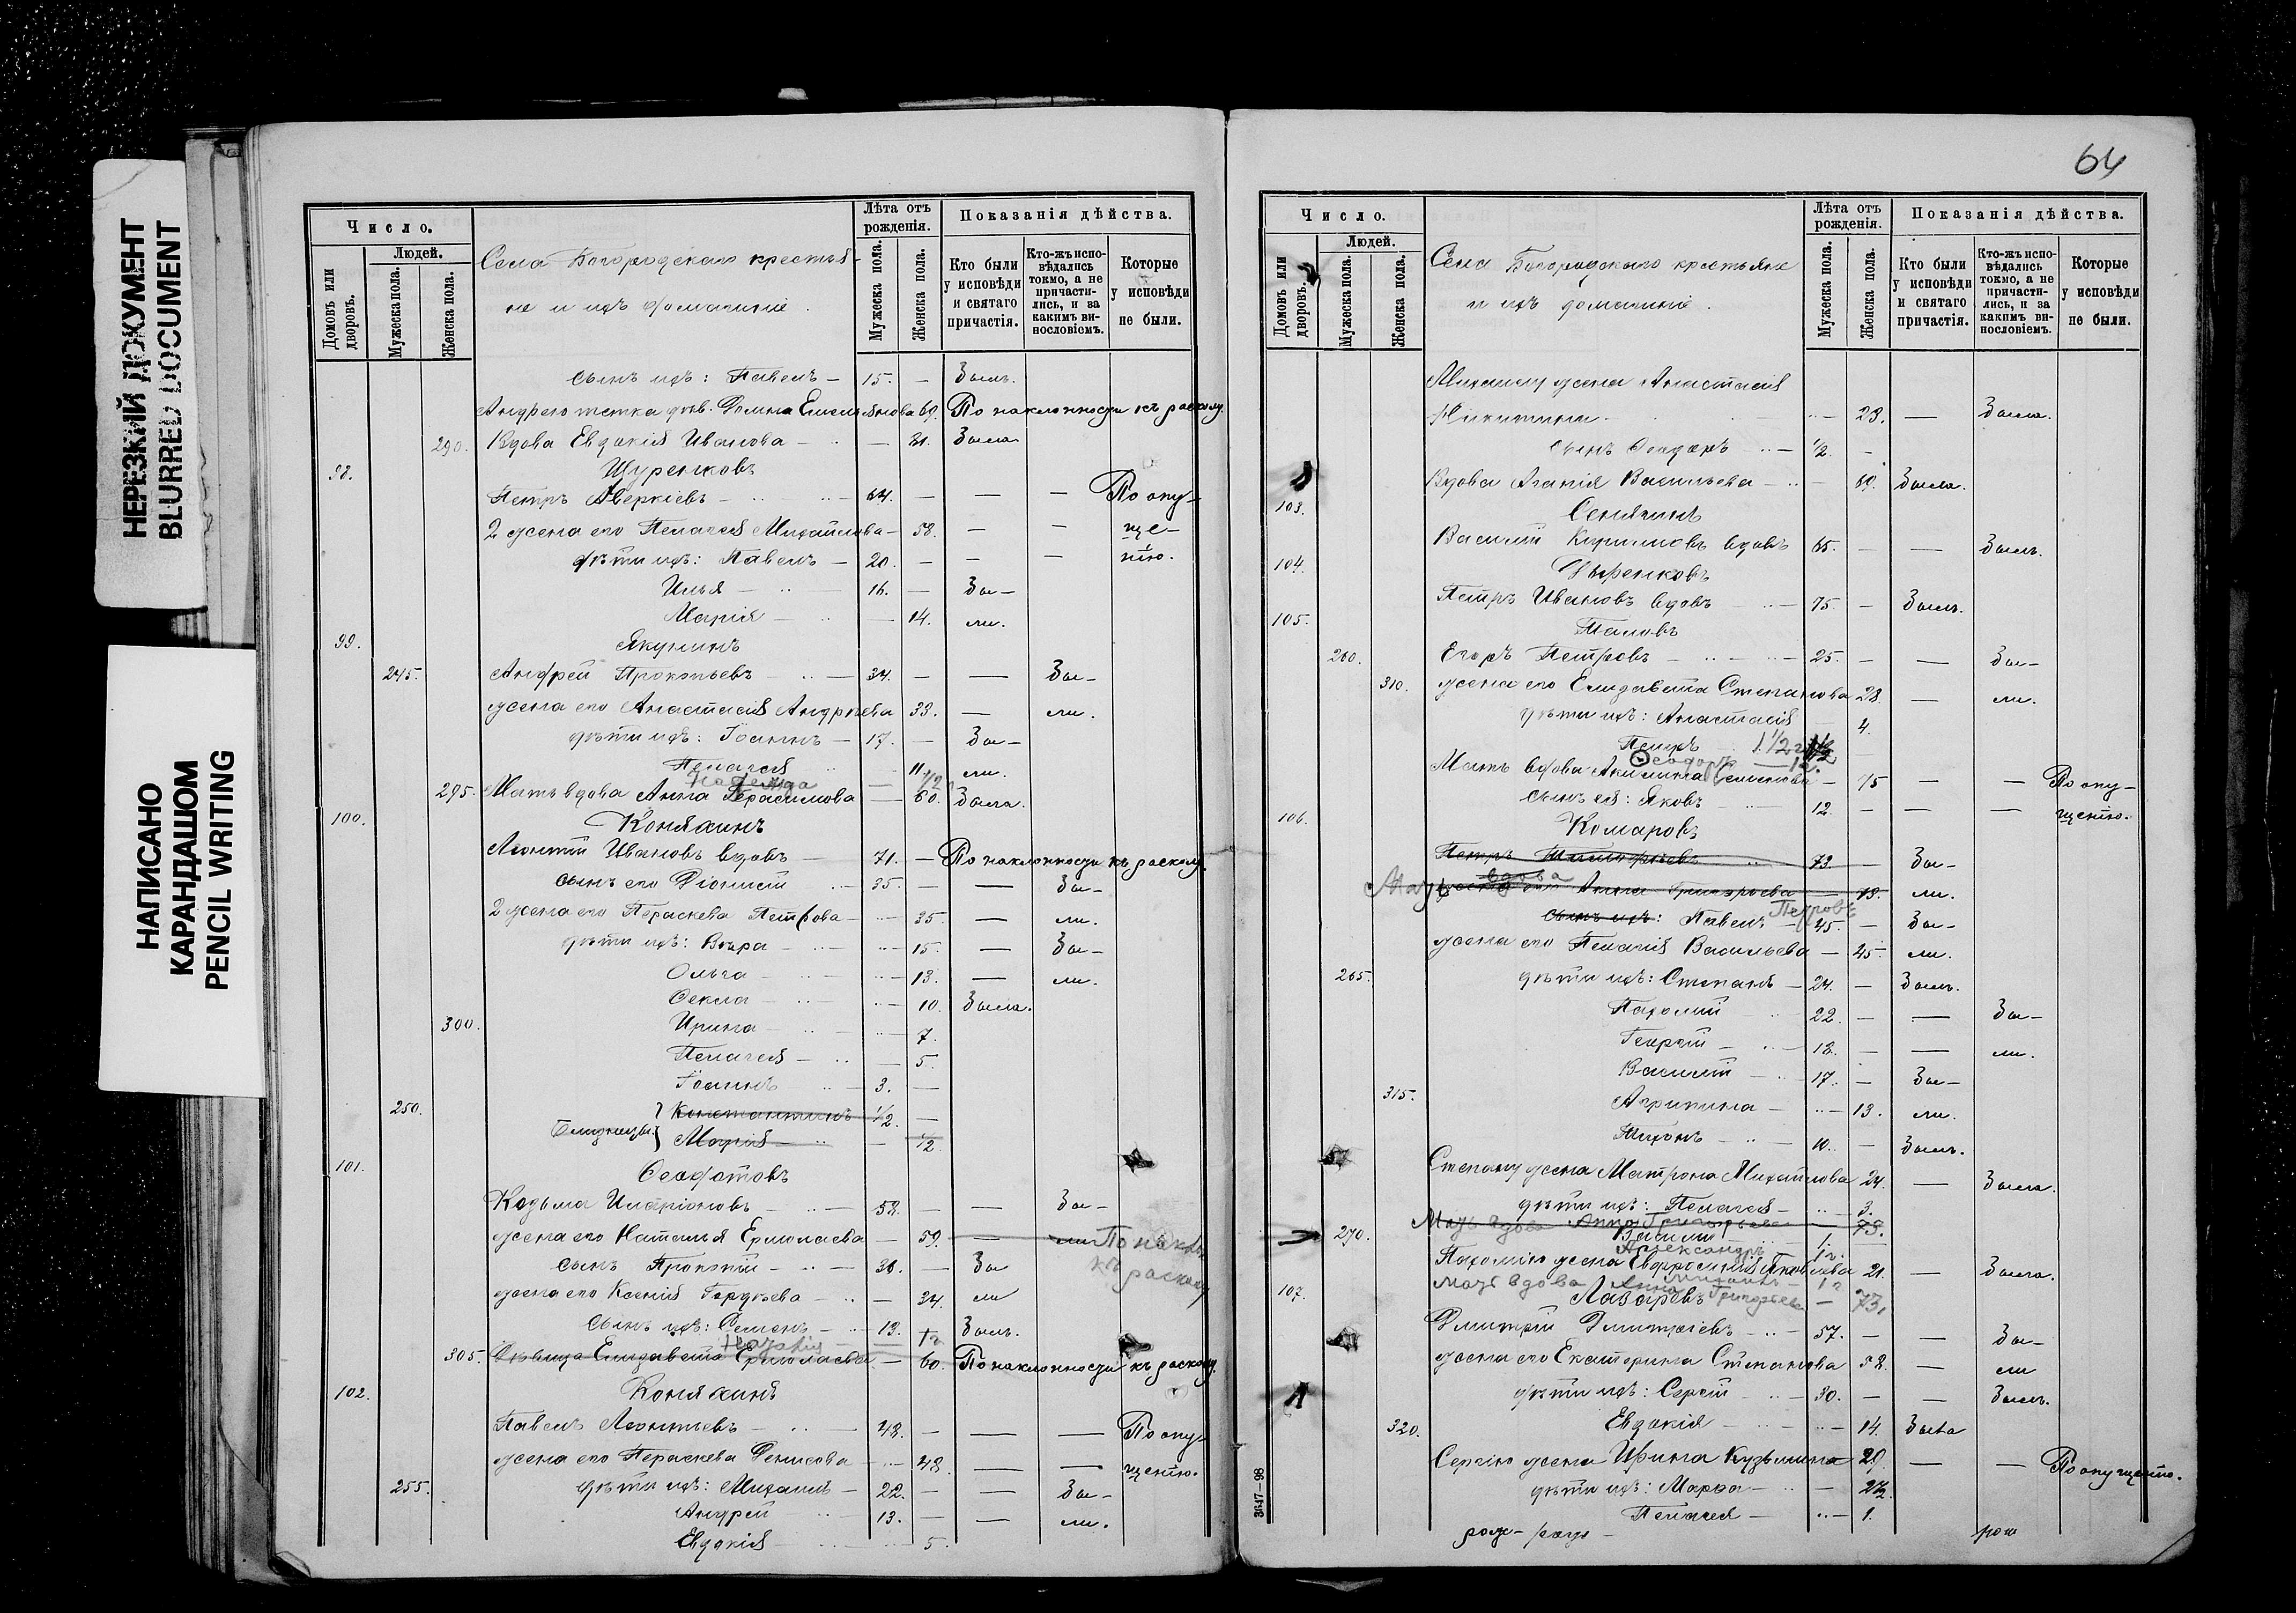 НЕРЕЗКИЙ ДОКУМЕНТ
BLURRED DOCUMENT
НАПИСАНО
КАРАНДАШОМ
PENCIL WRITING
Число.
Людей.
Домовъ или дворовъ.
Мужеска пола.
Женска пола.
Села Богородскаго крестья-
не и ихъ домашніе.
Лѣта отъ рожденія.
Мужеска пола.
Женска пола.
Показанія дѣйства.
Кто были у исповѣди и святаго причастія.
Кто-жъ исповѣдались токмо, а не причастились, и за какимъ винословіемъ.
Которые у исповѣди не были.
сынъ ихъ: Павелъ — 15. — Былъ.
Андрею тетка дѣв. Домна Емельянова 69. По наклонности къ расколу.
290. Вдова Евдокія Иванова — — 81. Была
98. Щуренковъ
Петръ Аверкіевъ — 64. — — — По опу-
2 жена его Пелагея Михайлова — 58. — — ще-
дѣти ихъ: Павелъ — 20. — — — нію.
Илья — 16. — Бы-
Марія — — 14. ли.
99. Якунинъ
245. Андрей Прокопьевъ — 34. — — Бы-
жена его Анастасія Андреева 33. — ли.
дѣти ихъ: Іоаннъ — 17. — Бы-
Пелагея 11. ли.
Надежда — 1/2
295. Мать вдова Анна Герасимова — 60. Была.
100. Коняхинъ
Леонтій Ивановъ вдовъ — 71. — По наклонности къ расколу.
сынъ его Діонисій 35. — — Бы-
2 жена его Параскева Петрова — 35 — ли.
дѣти ихъ: Вѣра — 15. — Бы-
Ольга — 13. — ли.
Ѳекла — 10. Была.
300. Ирина — 7.
Пелагея — — 5.
Іоаннъ 3. —
250. Константинъ 1/2. —
Близнецы } Марія — — 1/2.
101. Ѳеофотовъ
Козьма Иларіоновъ — 58. — — Бы-
жена его Наталья Ермолаева — 59. — ли По накл.
къ расколу
сынъ Прокопій — 36. — Бы
жена его Ксенія Гордѣева — 34. ли
Сынъ ихъ: Семенъ — 13. Былъ.
305. Дѣвица Елизавета Ермолаева — 60. По наклонности къ расколу.
102. Коняхинъ
Павелъ Леонтьевъ — 48. — — — По опу-
жена его Параскева Денисова — 48. — — щенію.
255. дѣти ихъ: Михаилъ — 22. — — Бы-
Андрей 13. — — ли.
Евдокія — 5.
64
Число.
Людей.
Домовъ или дворовъ.
Мужеска пола.
Женска пола.
Села Богородскаго крестьяне
и ихъ домашніе.
Лѣта отъ рожденія.
Мужеска пола.
Женска пола.
Показанія дѣйства.
Кто были у исповѣди и святаго причастія.
Кто-жъ исповѣдались токмо, а не причастились, и за какимъ винословіемъ.
Которые у исповѣди не были.
Михаилу жена Анастасія
Никитина — 23. — Была.
сынъ Ѳеодоръ — 1/2. —
Вдова Агапія Васильева — 60. Была.
103. Сенягинъ
Василій Кирилловъ вдовъ 65. — — Былъ.
104.
Петръ Ивановъ вдовъ — 75. — Былъ.
105.
260. Егоръ Петровъ — 25. — — Бы-
310. жена его Елизавета Степанова 28. — ли.
дѣти ихъ: Анастасія 4.
Петръ 1 1/2
Ѳеодоръ
Мать вдова Акилина Семенова — 75 — — По опу-
сынъ ея: Яковъ 12. — — — щенію.
106. Комаровъ
Петръ Тимоѳеевъ 73. — Бы-
вдова
Мать Анна Григорьева — 73. ли.
Петровъ
сынъ ихъ: Павелъ — 45. — Бы-
жена его Пелагія Васильева — 45. ли.
265. дѣти ихъ: Степанъ — 24. — Былъ.
Пахомій 22. — — Бы-
Георгій — 18. — — ли.
Василій — 17. — Бы-
315. Агрипина — 13. ли.
Тихонъ — 10. — Былъ.
Степану жена Матрона Михайлова 24. — Была.
дѣти ихъ: Пелагея — 3.
Мать вдова Анна Григорьева 73.
270. Василій 1.
Александръ 1 г.
Пахомію жена Евфросинія Яковлева 21. — Была.
мать вдова Анна Григорьева — 73.
107. Лазаревъ
Димитрій Димитріевъ — 57. — — Бы-
жена его Екатерина Степанова 58. — ли
дѣти ихъ: Сергій — 30. — — Былъ.
320. Евдокія — 14. Была
Сергію жена Ирина Кузьмина 29. — — По опущенію.
дѣти ихъ: Марѳа —
Пелагея — 1.
3647—98